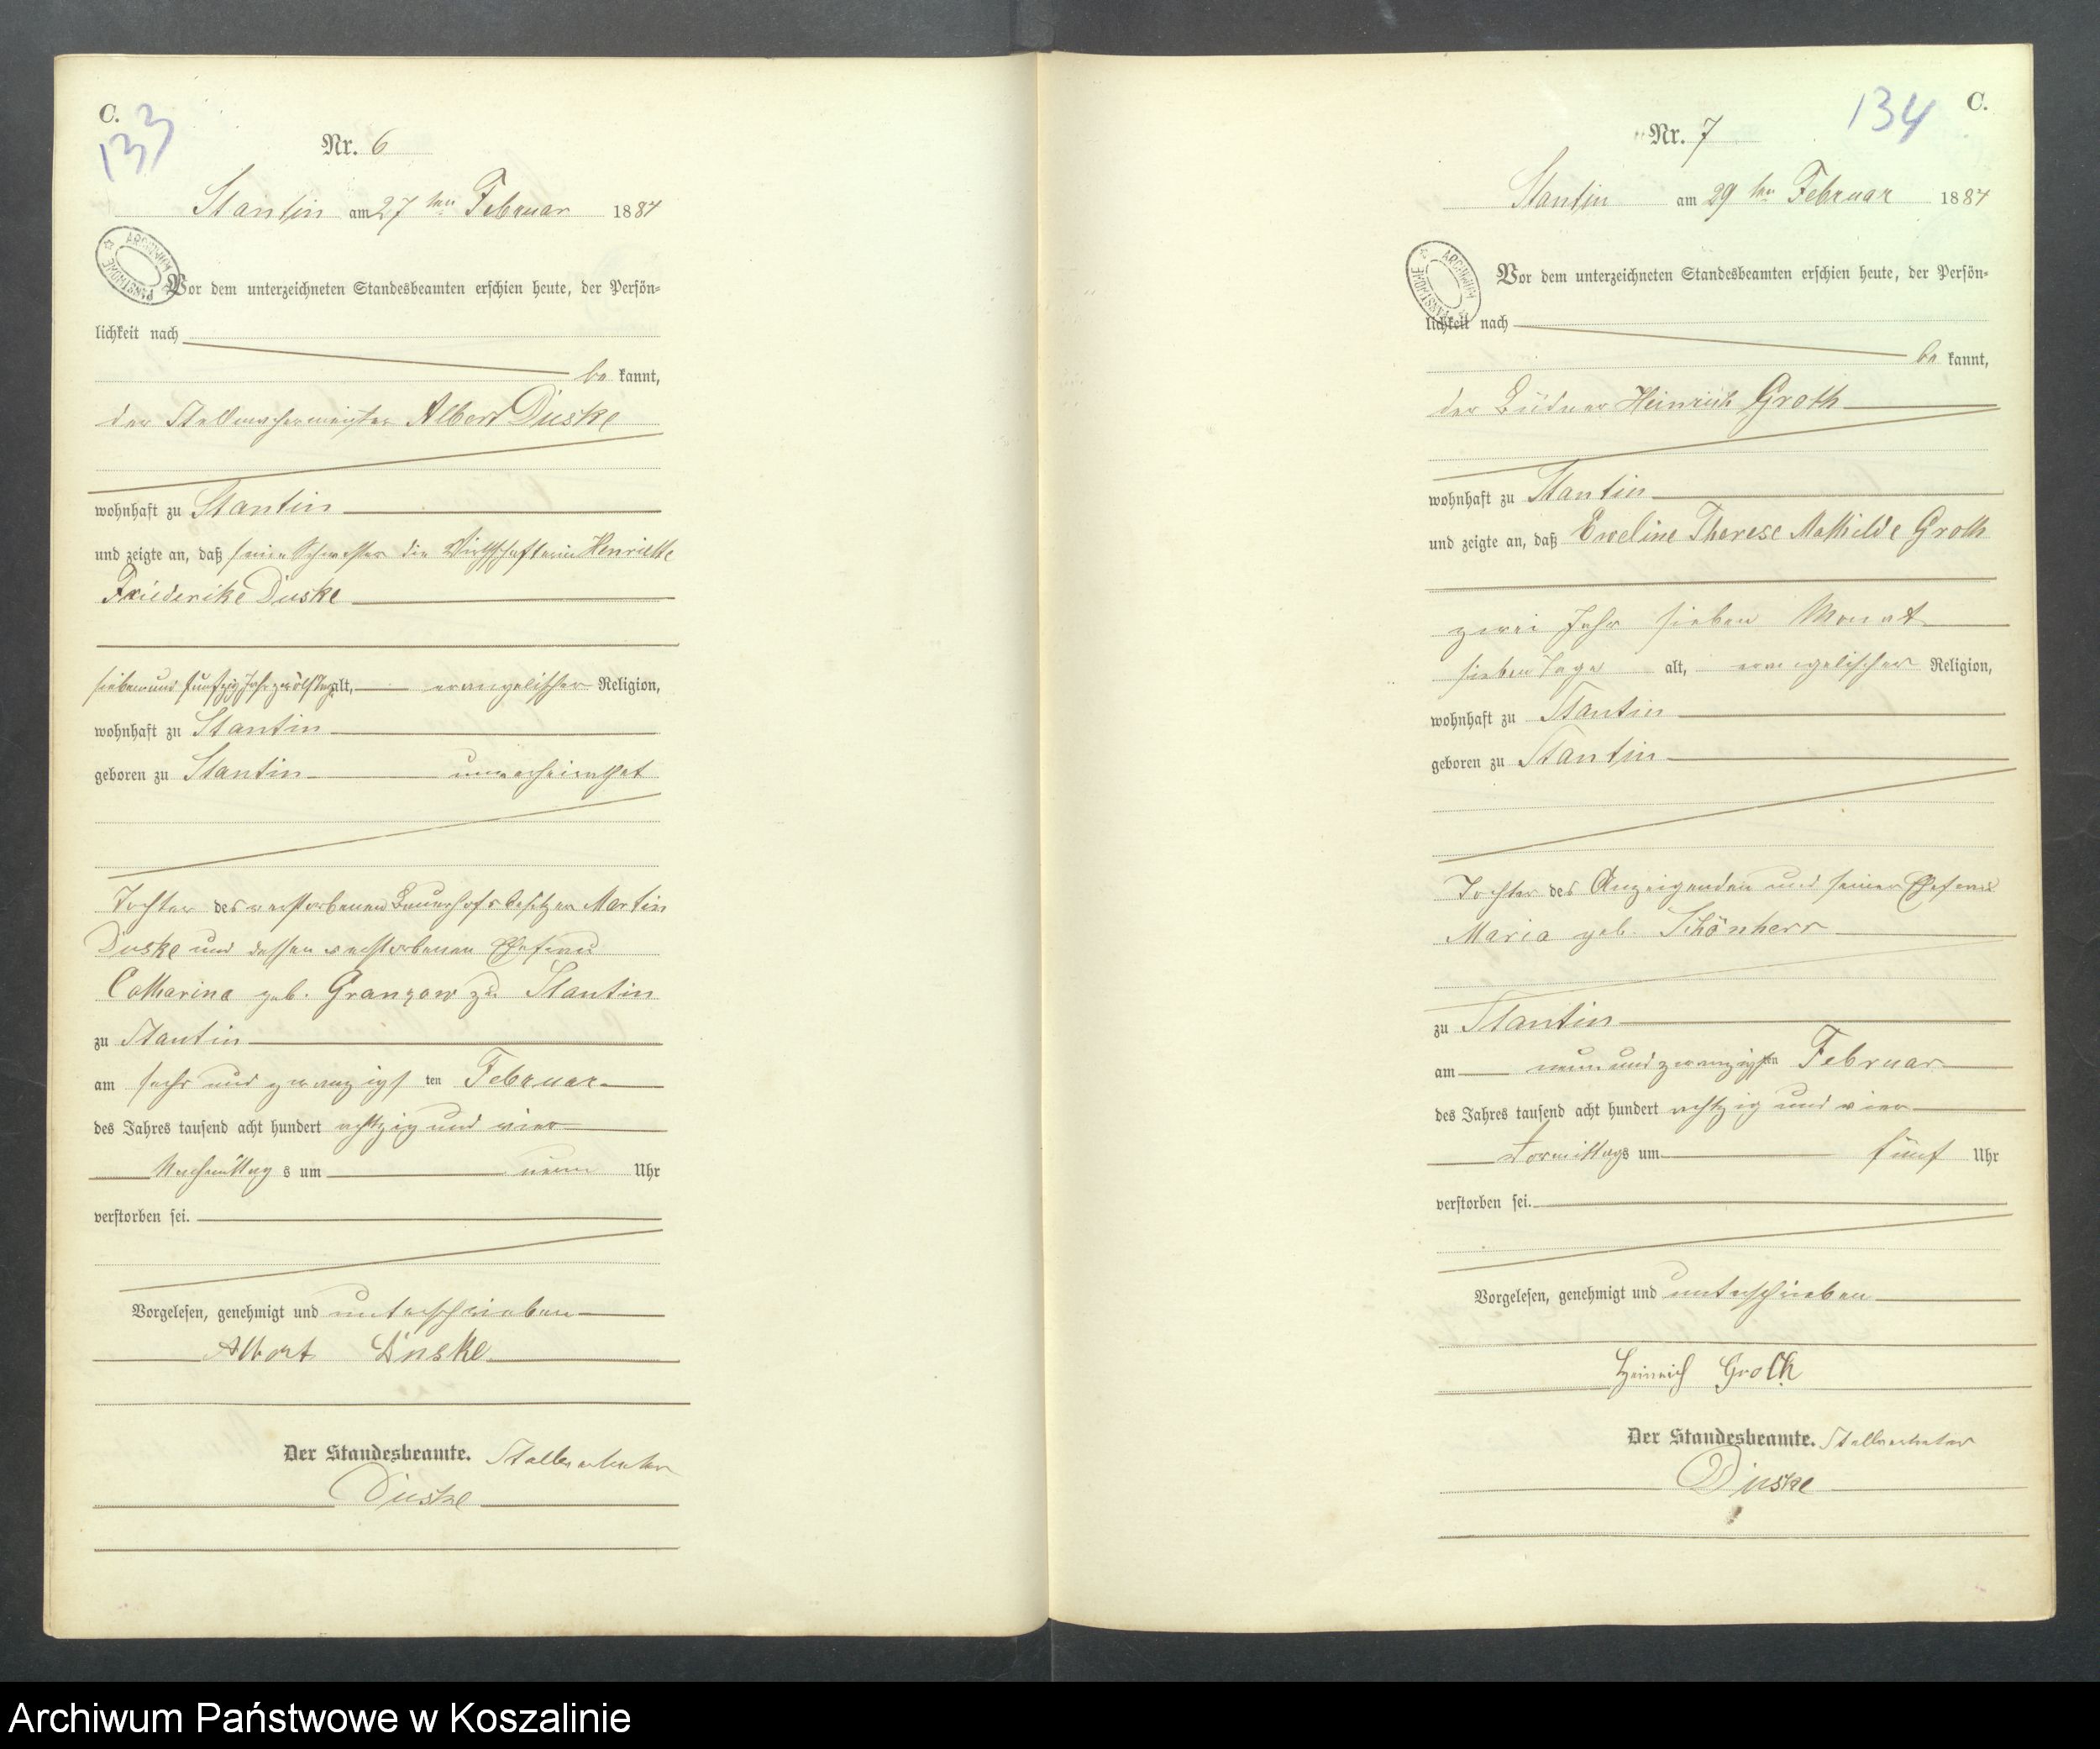 C.
133
Nr. 6
Stantin am 27ten Februar 1884
ARCHIWUM PAŃSTWOWE
Vor dem unterzeichneten Standesbeamten erschien heute, der Persön-
lichkeit nach
be kannt,
der Stellmachermeister Albert Duske
wohnhaft zu Stantin
und zeigte an, daß seine Schwester die Wirthschafterin Henriette
Friederike Duske
siebenund fünfzig Jahr zwölf Tage alt, evangelischer Religion,
wohnhaft zu Stantin
geboren zu Stantin unverheirathet
Tochter des verstorbenen Bauerhofsbesitzer Martin
Duske und dessen verstorbenen Ehefrau
Catharina geb. Granzow zu Stantin
zu Stantin
am sechs und zwanzigs ten Februar
des Jahres tausend acht hundert achtzig und vier
Nachmittag s um neun Uhr
verstorben sei.
Vorgelesen, genehmigt und unterschrieben
Albert Duske
Der Standesbeamte. Stellvertreter
Duske
134
C.
Nr. 7
Stantin am 29ten Februar 1884
ARCHIWUM PAŃSTWOWE
Vor dem unterzeichneten Standesbeamten erschien heute, der Persön-
lichkeit nach
be kannt,
der Büdner Heinrich Groth
wohnhaft zu Stantin
und zeigte an, daß Eveline Therese Mathilde Groth
zwei Jahr sieben Monat
sieben Tage alt, evangelischer Religion,
wohnhaft zu Stantin
geboren zu Stantin
Tochter des Anzeigenden und seiner Ehefrau
Maria geb. Schönherr
zu Stantin
am neun und zwanzigsten Februar
des Jahres tausend acht hundert achtzig und vier
Vormittags um fünf Uhr
verstorben sei.
Vorgelesen, genehmigt und unterschrieben
Heinrich Groth
Der Standesbeamte. Stellvertreter
Duske
Archiwum Państwowe w Koszalinie